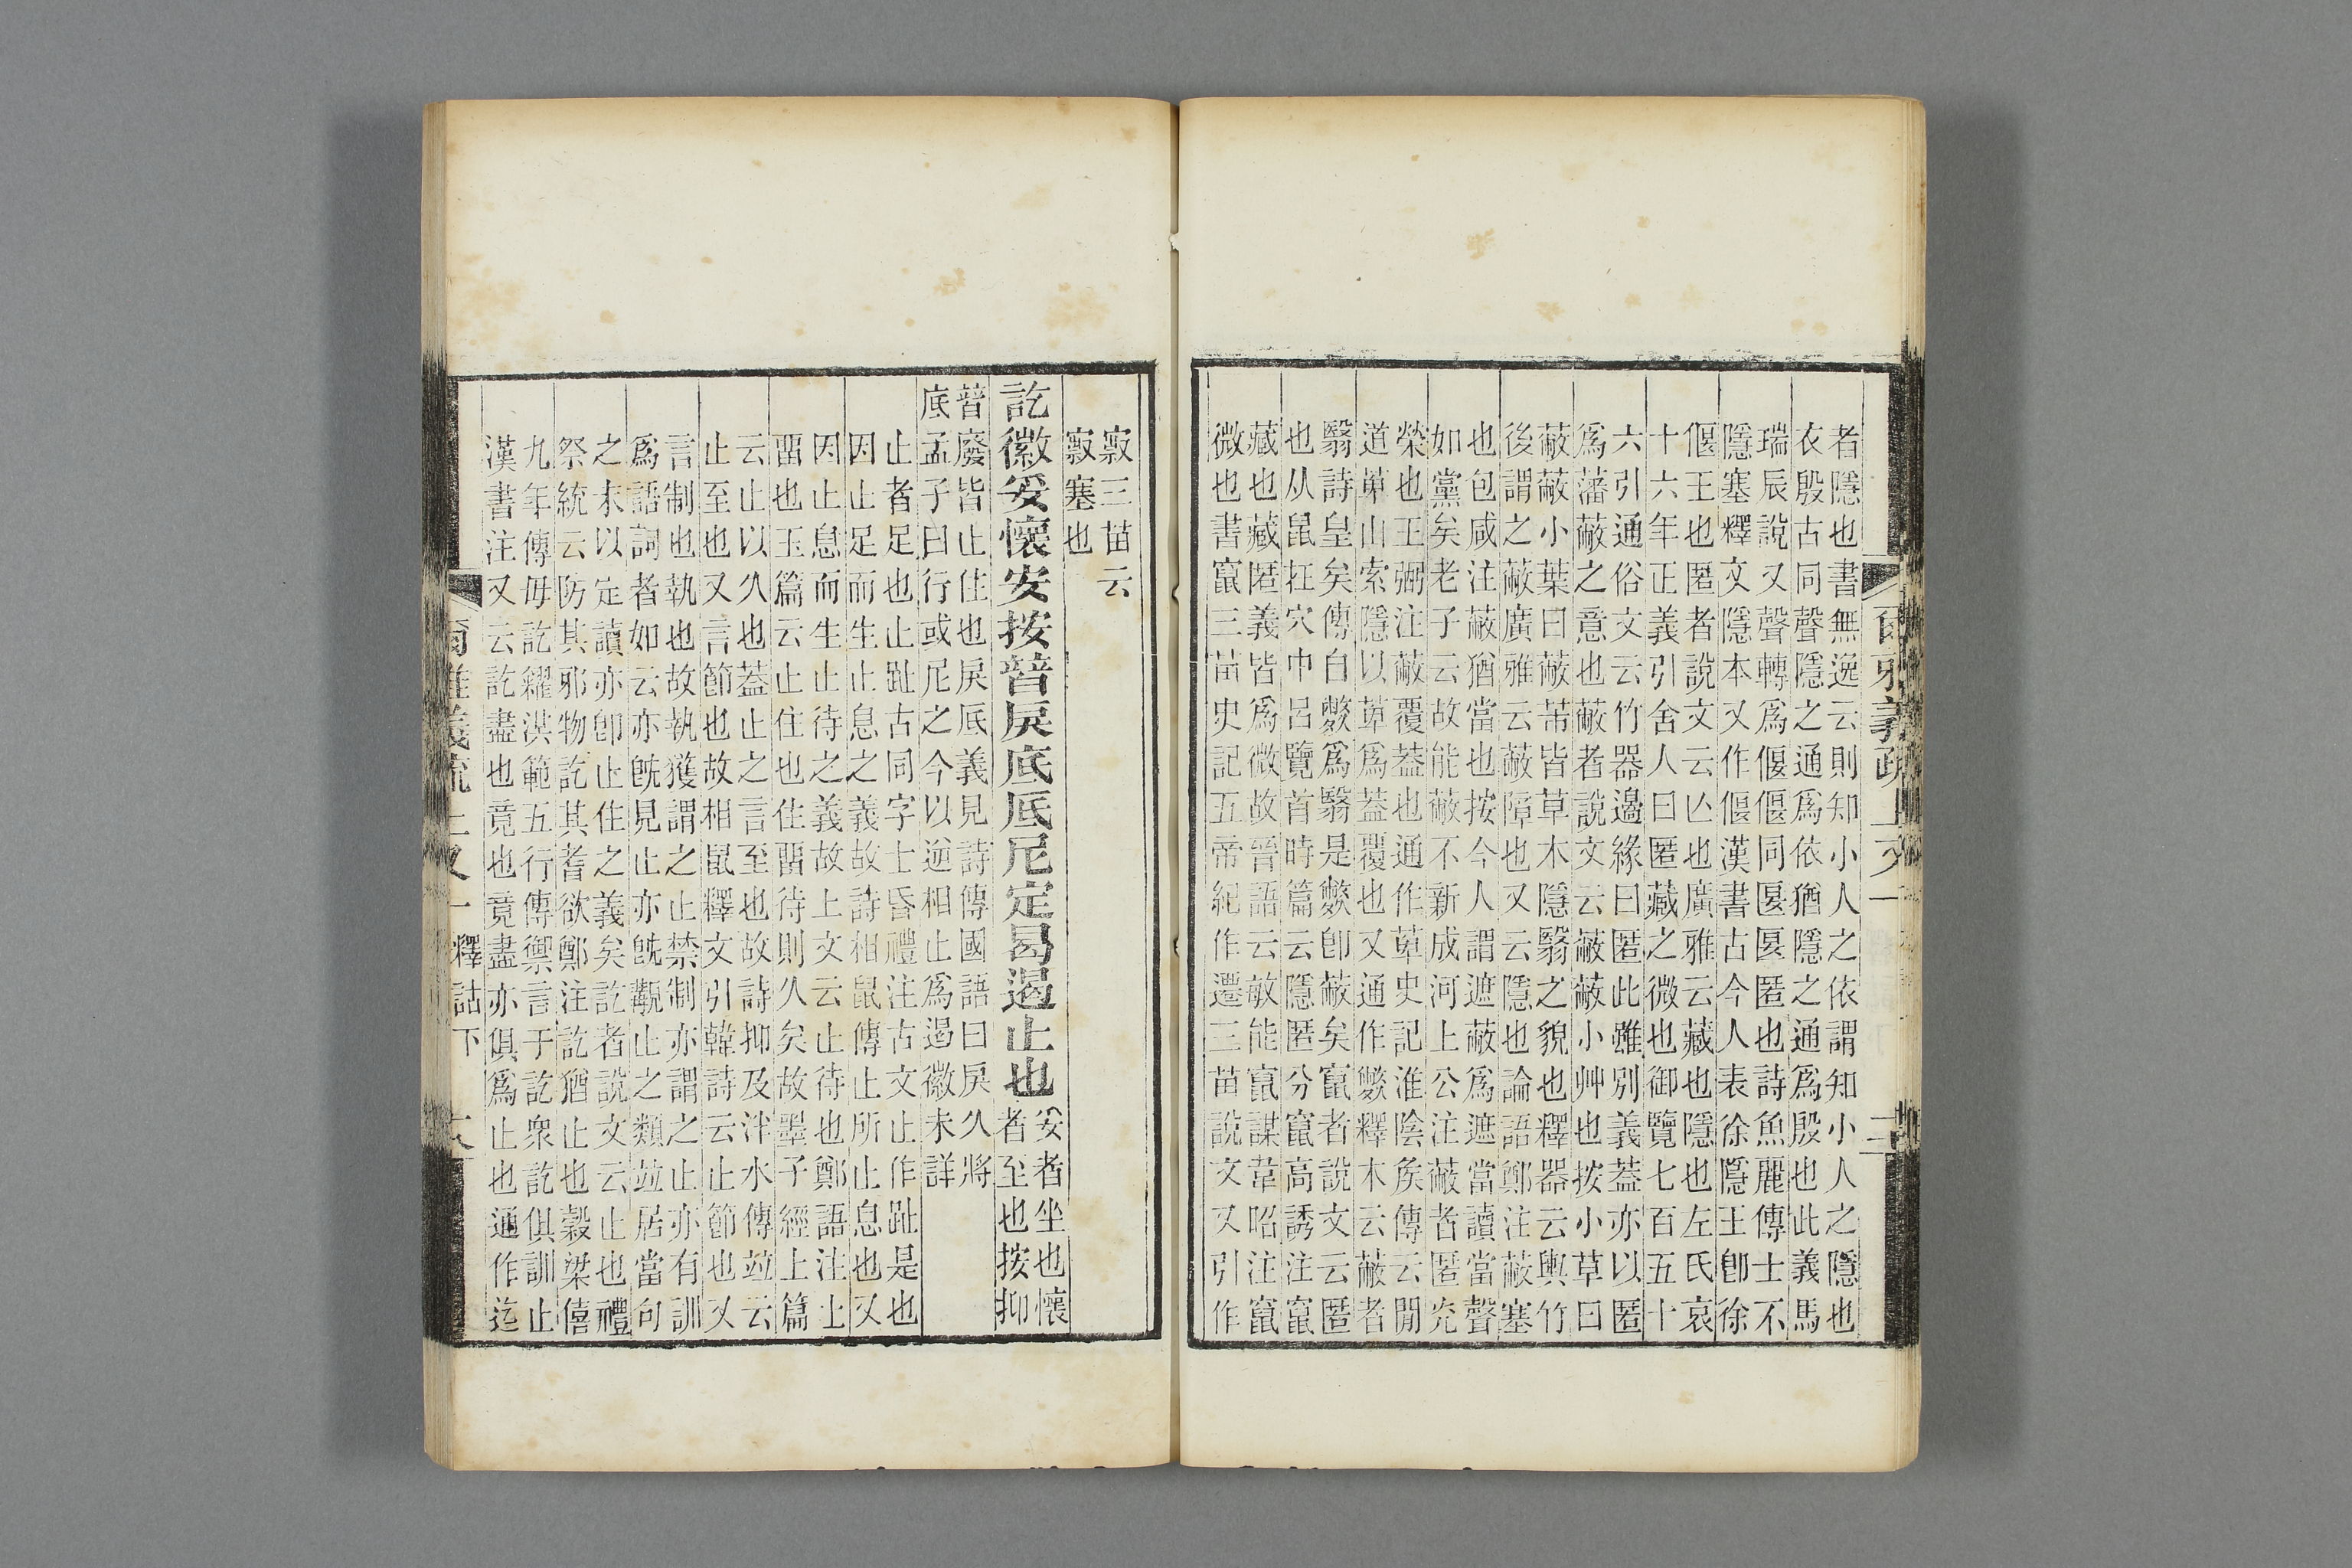 爾雅義疏上又一
者隱也書無逸云則知小人之依謂知小人之隱也
衣殷古同聲隱之通爲依猶隱之通爲殷也此義馬
瑞辰說又聲轉爲偃偃同匽匽匿也詩魚麗傳士不
隱塞釋文隱本又作偃漢書古今人表徐隱王卽徐
偃王也匿者說文云亾也廣雅云藏也隱也左氏哀
十六年正義引舍人曰匿藏之微也御覽七百五十
六引通俗文云竹器邊緣曰匿此雖別義蓋亦以匿
爲藩蔽之意也蔽者說文云蔽蔽小艸也按小草曰
蔽蔽小葉曰蔽芾皆草木隱翳之貌也釋器云輿竹
後謂之蔽廣雅云蔽障也又云隱也論語鄭注蔽塞
也包咸注蔽猶當也按今人謂遮蔽爲遮當讀當聲
如黨矣老子云故能蔽不新成河上公注蔽者匿光
榮也王弼注蔽覆蓋也通作萆史記淮陰矦傳云閒
道萆山索隱以萆爲蓋覆也又通作蘙釋木云蔽者
翳詩皇矣傳白斃爲翳是斃卽蔽矣竄者說文云匿
也从鼠在穴中呂覽首時篇云隱匿分竄高誘注竄
藏也藏匿義皆爲微故晉語云敏能竄謀韋昭注竄
微也書竄三苗史記五帝紀作遷三苗說文又引作
𥨥三苗云
𥨥塞也
訖徽妥懷安按朁戾底厎尼定曷遏止也
妥者坐也懷
者至也按抑
朁廢皆止住也戾厎義見詩傳國語曰戾久將
底孟子曰行或尼之今以逆相止爲遏徽未詳
止者足也止趾古同字士昏禮注古文止作趾是也
因止足而生止息之義故詩相鼠傳止所止息也又
因止息而生止待之義故上文云止待也鄭語注止
畱也玉篇云止住也住畱待則久矣故墨子經上篇
云止以久也蓋止之言至也故詩抑及泮水傳竝云
止至也又言節也故相鼠釋文引韓詩云止節也又
言制也執也故執獲謂之止禁制亦謂之止亦有訓
爲語詞者如云亦旣見止亦旣覯止之類竝居當句
之末以定讀亦卽止住之義矣訖者說文云止也禮
祭統云防其邪物訖其耆欲鄭注訖猶止也穀梁僖
九年傳毋訖糴洪範五行傳禦言于訖衆訖俱訓止
漢書注又云訖盡也竟也竟盡亦俱爲止也通作迄
爾雅義疏上又一 釋詁下